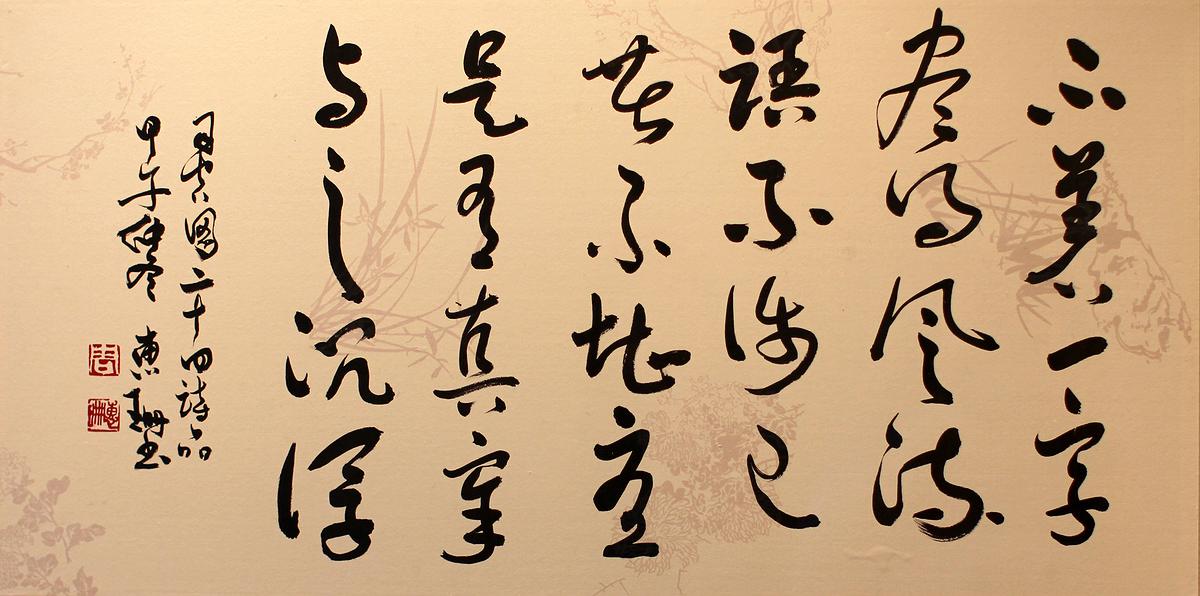 不著一字
尽得风流
語不涉己
若不堪憂
是有真宰
与之沉浮
司空图二十四詩品
甲午仲冬 惠珊书